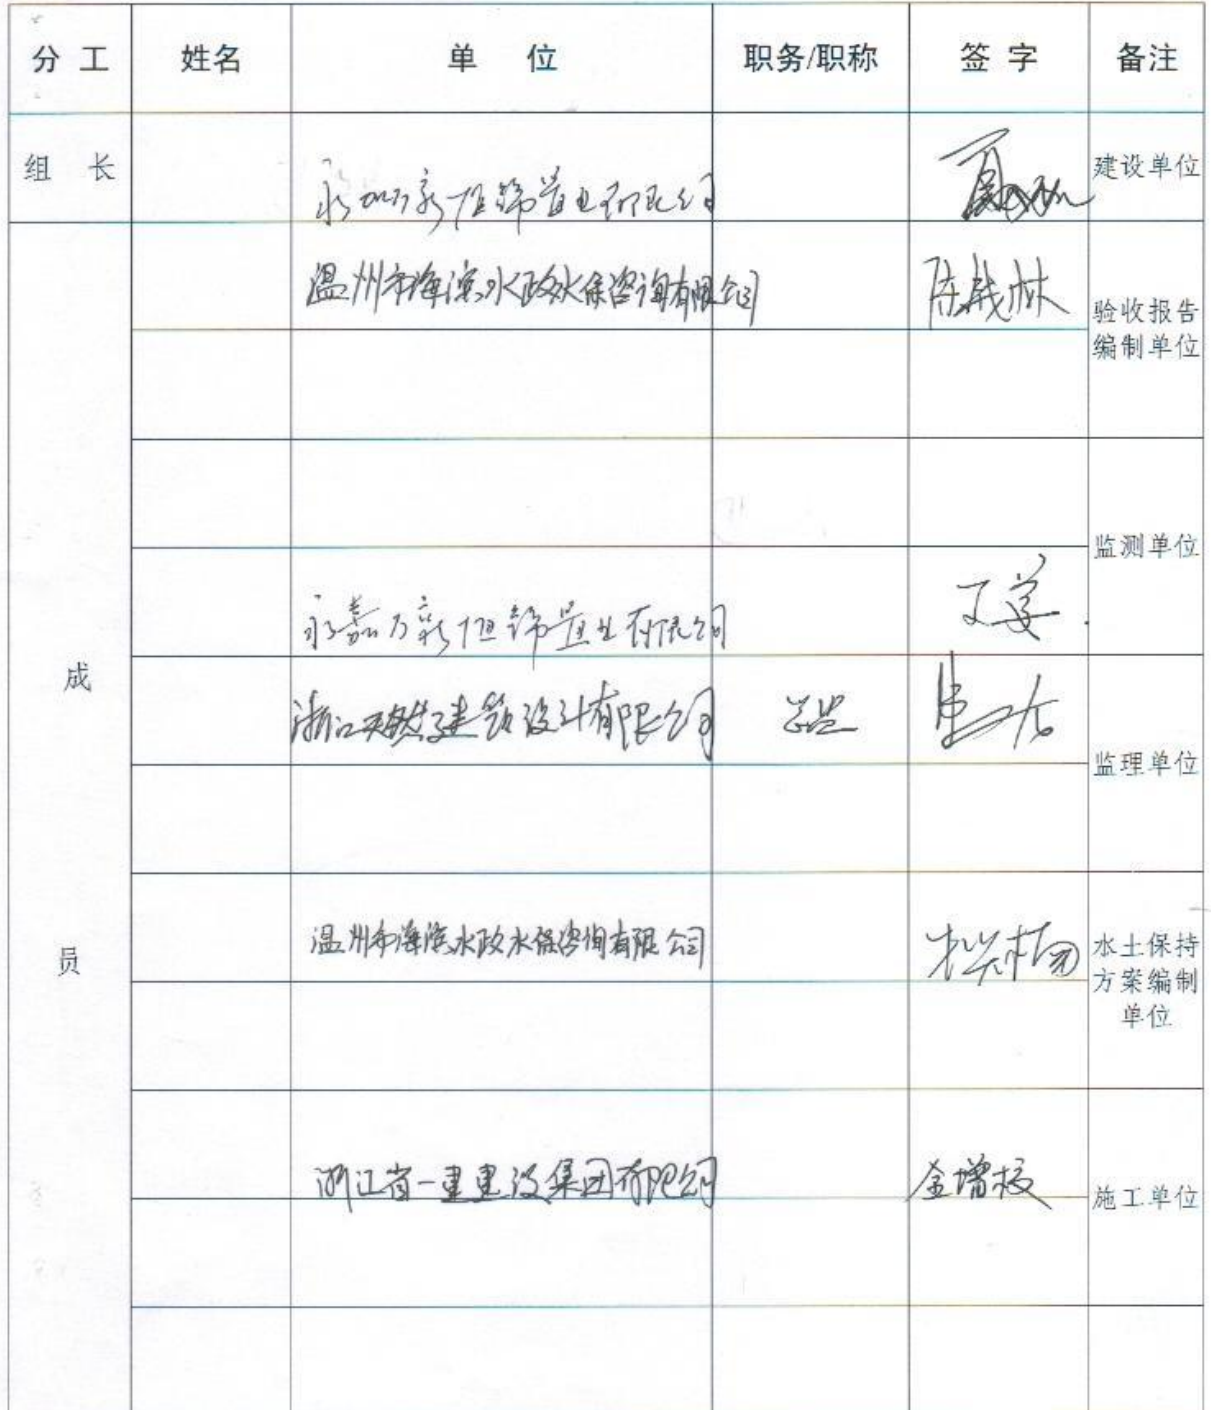 分 工 姓名 单 位 职务/职称 签 字 备注
组 长 建设单位
温州市海滨水政水保咨询有限公司
验收报告
编制单位
监测单位
永嘉万新恒锦置业有限公司
成
浙江 建筑设计有限公司 总监
监理单位
温州市海滨水政水保咨询有限公司
员
水土保持
方案编制
单位
浙江省一建建设集团有限公司 金增校
施工单位